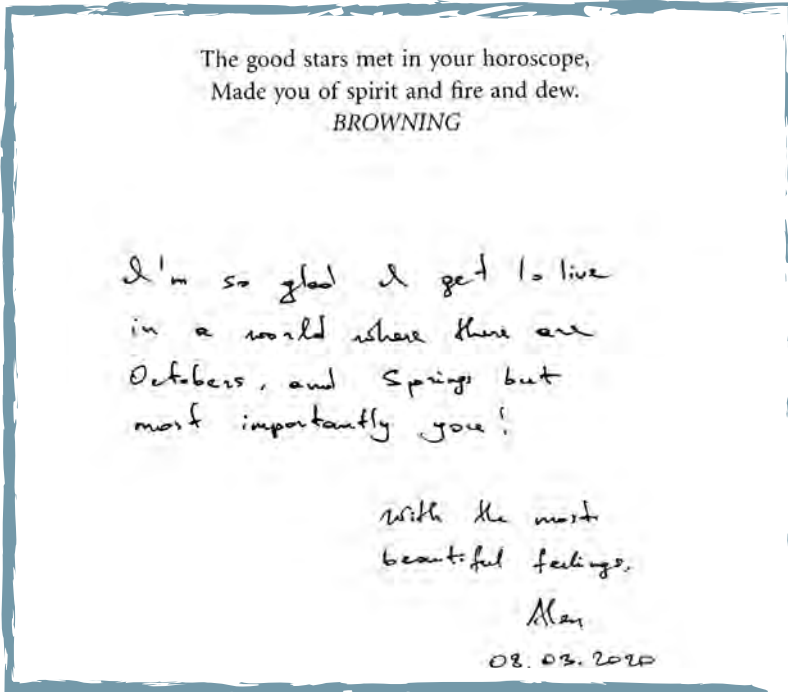 The good stars met in your horoscope,
Made you of spirit and fire and dew.
BROWNING
I'm so glad I get to live
in a world where there are
Octobers, and Springs but
most importantly you!
With the most
beautiful feelings.
Alen
08.03.2020